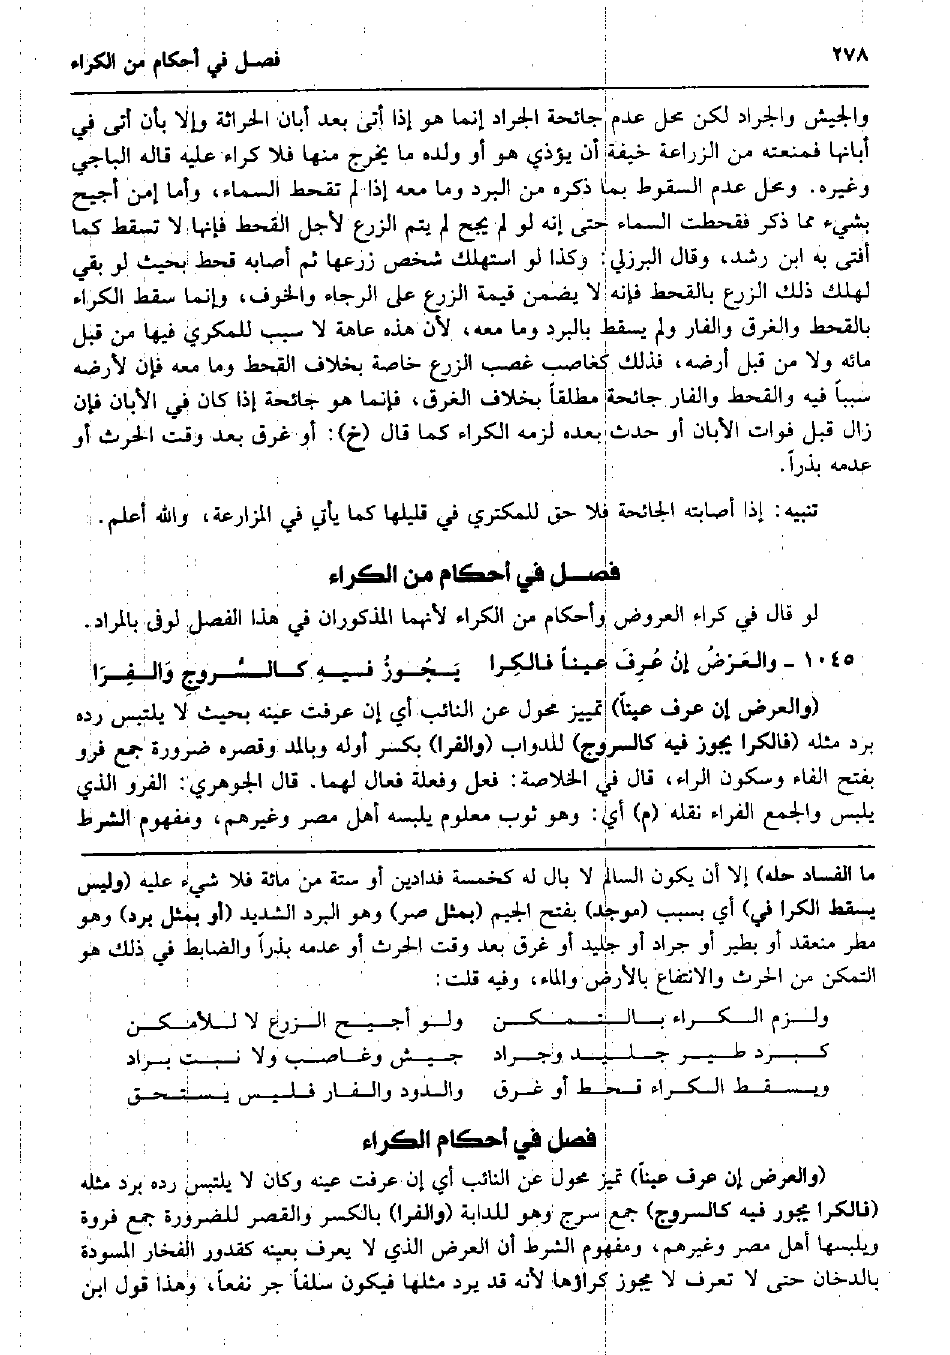 ٢٧٨
فصل في أحكام من الكراء
والجيش والجراد لكن محل عدم جائحة الجراد إنما هو إذا أتى بعد أبان الحراثة وإلا بأن أتى في
أبانها فمنعته من الزراعة خيفة أن يؤذي هو أو ولده ما يخرج منها فلا كراء عليه قاله الباجي
وغيره. ومحل عدم السقوط بما ذكره من البرد وما معه إذا لم تقحط السماء، وأما إن أجيح
بشيء مما ذكر فقحطت السماء حتى إنه لو لم يجح لم يتم الزرع لأجل القحط فإنها لا تسقط كما
أفتى به ابن رشد، وقال البرزلي: وكذا لو استهلك شخص زرعها ثم أصابه قحط بحيث لو بقي
لهلك ذلك الزرع بالقحط فإنه لا يضمن قيمة الزرع على الرجاء والخوف، وإنما سقط الكراء
بالقحط والغرق والفار ولم يسقط بالبرد وما معه، لأن هذه عاهة لا سبب للمكري فيها من قبل
مائه ولا من قبل أرضه، فذلك كغاصب غصب الزرع خاصة بخلاف القحط وما معه فإن لأرضه
سبباً فيه والقحط والفار جائحة مطلقاً بخلاف الغرق، فإنما هو جائحة إذا كان في الأبان فإن
زال قبل فوات الأبان أو حدث بعده لزمه الكراء كما قال (خ): أو غرق بعد وقت الحرث أو
عدمه بذراً.
تنبيه: إذا أصابته الجائحة فلا حق للمكتري في قليلها كما يأتي في المزارعة، والله أعلم.
فصل في أحكام من الكراء
لو قال في كراء العروض وأحكام من الكراء لأنهما المذكوران في هذا الفصل لوفى بالمراد.
١٠٤٥ ـ والعَرْضُ إنْ عُرِفَ عيناً فالكِرا يَجُوزُ فيهِ كالسُّروجِ وَالفِرَا
(والعرض إن عرف عيناً) تمييز محول عن النائب أي إن عرفت عينه بحيث لا يلتبس رده
برد مثله (فالكرا يجوز فيه كالسروج) للدواب (والفرا) بكسر أوله وبالمد وقصره ضرورة جمع فرو
بفتح الفاء وسكون الراء، قال في الخلاصة: فعل وفعلة فعال لهما. قال الجوهري: الفرو الذي
يلبس والجمع الفراء نقله (م) أي: وهو ثوب معلوم يلبسه أهل مصر وغيرهم، ومفهوم الشرط
ما الفساد حله) إلا أن يكون السالم لا بال له كخمسة فدادين أو ستة من مائة فلا شيء عليه (وليس
يسقط الكرا في) أي بسبب (موجد) بفتح الجيم (بمثل صر) وهو البرد الشديد (أو بمثل برد) وهو
مطر منعقد أو بطير أو جراد أو جليد أو غرق بعد وقت الحرث أو عدمه بذراً والضابط في ذلك هو
التمكن من الحرث والانتفاع بالأرض والماء، وفيه قلت:
ولزم الكراء بالتمكن ولو أجيح الزرع لا للأمكن
كبرد طير جليد وجراد جيش وغاصب ولا نبت يراد
ويسقط الكراء قحط أو غرق والدود والفار فليس يستحق
فصل في أحكام الكراء
(والعرض إن عرف عيناً) تميز محول عن النائب أي إن عرفت عينه وكان لا يلتبس رده برد مثله
(فالكرا يجوز فيه كالسروج) جمع سرج وهو للدابة (والفرا) بالكسر والقصر للضرورة جمع فروة
ويلبسها أهل مصر وغيرهم، ومفهوم الشرط أن العرض الذي لا يعرف بعينه كقدور الفخار المسودة
بالدخان حتى لا تعرف لا يجوز كراؤها لأنه قد يرد مثلها فيكون سلفاً جر نفعاً، وهذا قول ابن